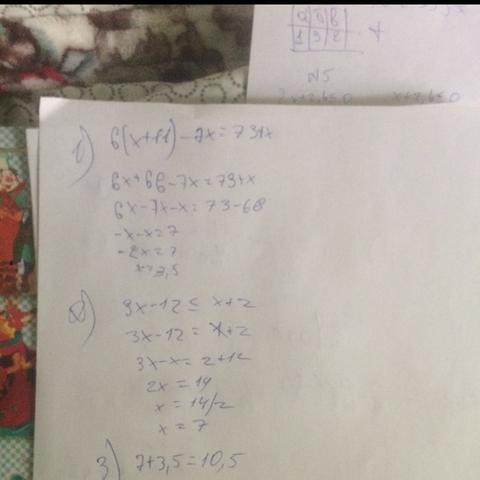 а б в
1 3 2
N5
x+2,6≤0
1)
6(x+11)-7x=73+x
6x+66-7x=73+x
6x-7x-x=73-66
-x-x=7
-2x=7
x=3,5
2)
3x-12≤x+2
3x-12=x+2
3x-x=2+12
2x=14
x=14/2
x=7
3) 7+3,5=10,5